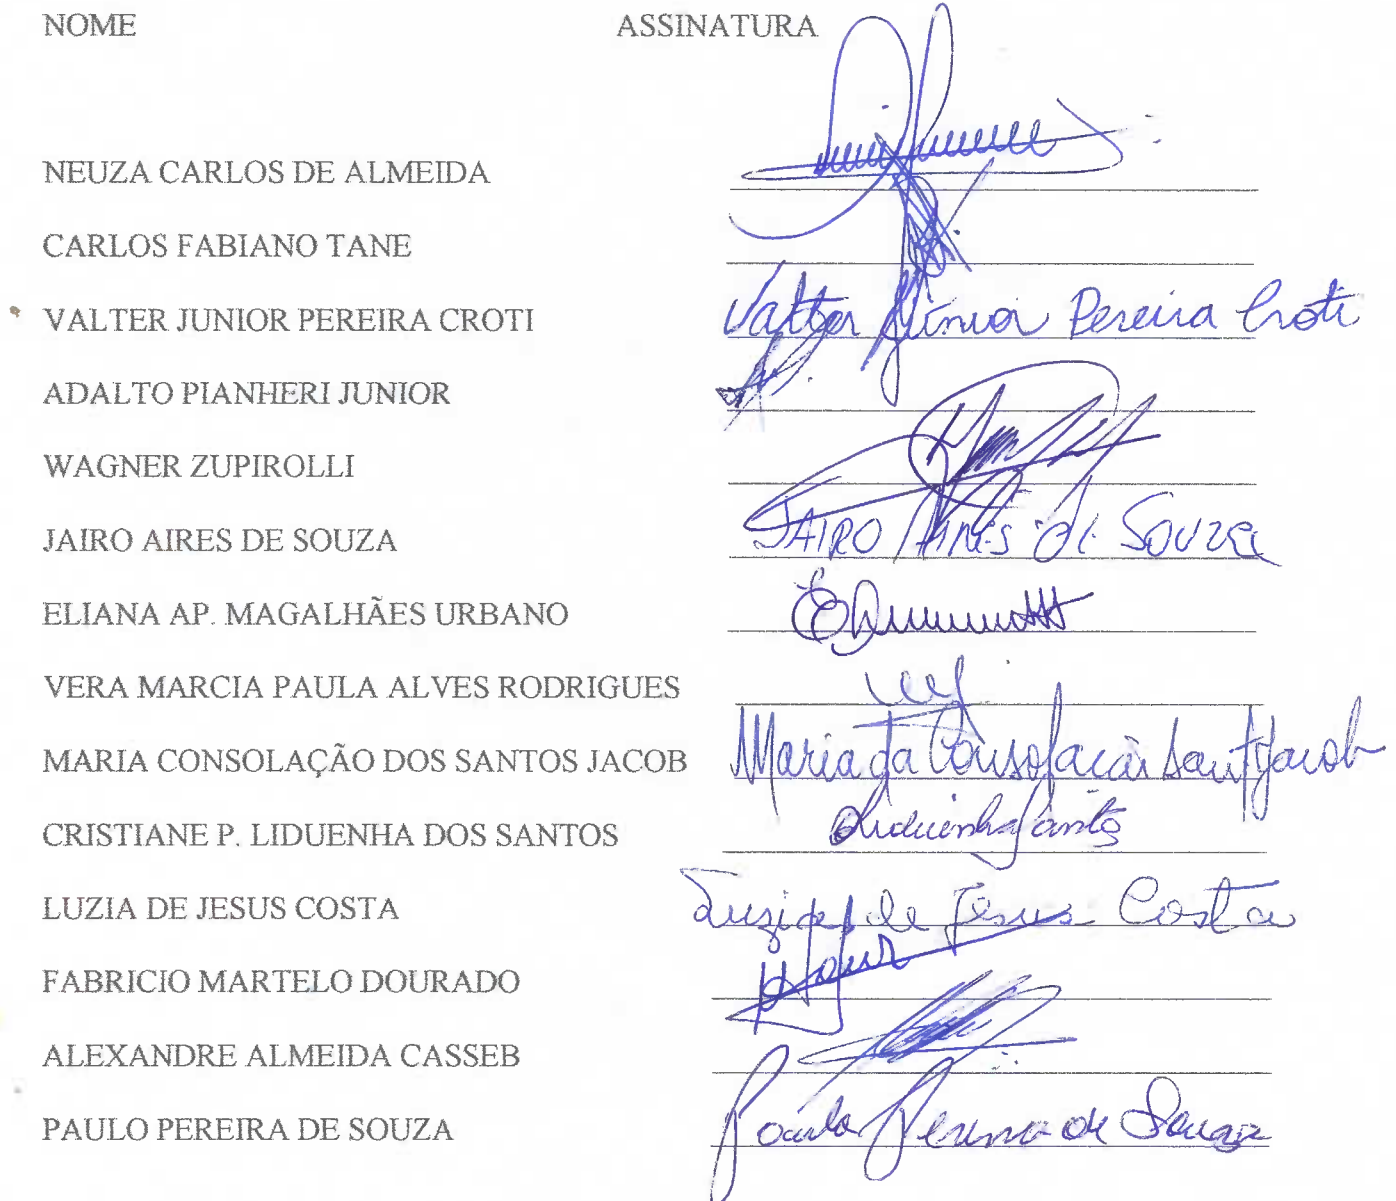 NOME ASSINATURA
NEUZA CARLOS DE ALMEIDA
CARLOS FABIANO TANE
VALTER JUNIOR PEREIRA CROTI Valter Júnior Pereira Croti
ADALTO PIANHERI JUNIOR
WAGNER ZUPIROLLI
JAIRO AIRES DE SOUZA JAIRO AIRES DE SOUZA
ELIANA AP. MAGALHÃES URBANO
VERA MARCIA PAULA ALVES RODRIGUES
MARIA CONSOLAÇÃO DOS SANTOS JACOB Maria da Consolação Jacob
CRISTIANE P. LIDUENHA DOS SANTOS
LUZIA DE JESUS COSTA Luzia de Jesus Costa
FABRICIO MARTELO DOURADO
ALEXANDRE ALMEIDA CASSEB
PAULO PEREIRA DE SOUZA Paulo Pereira de Souza